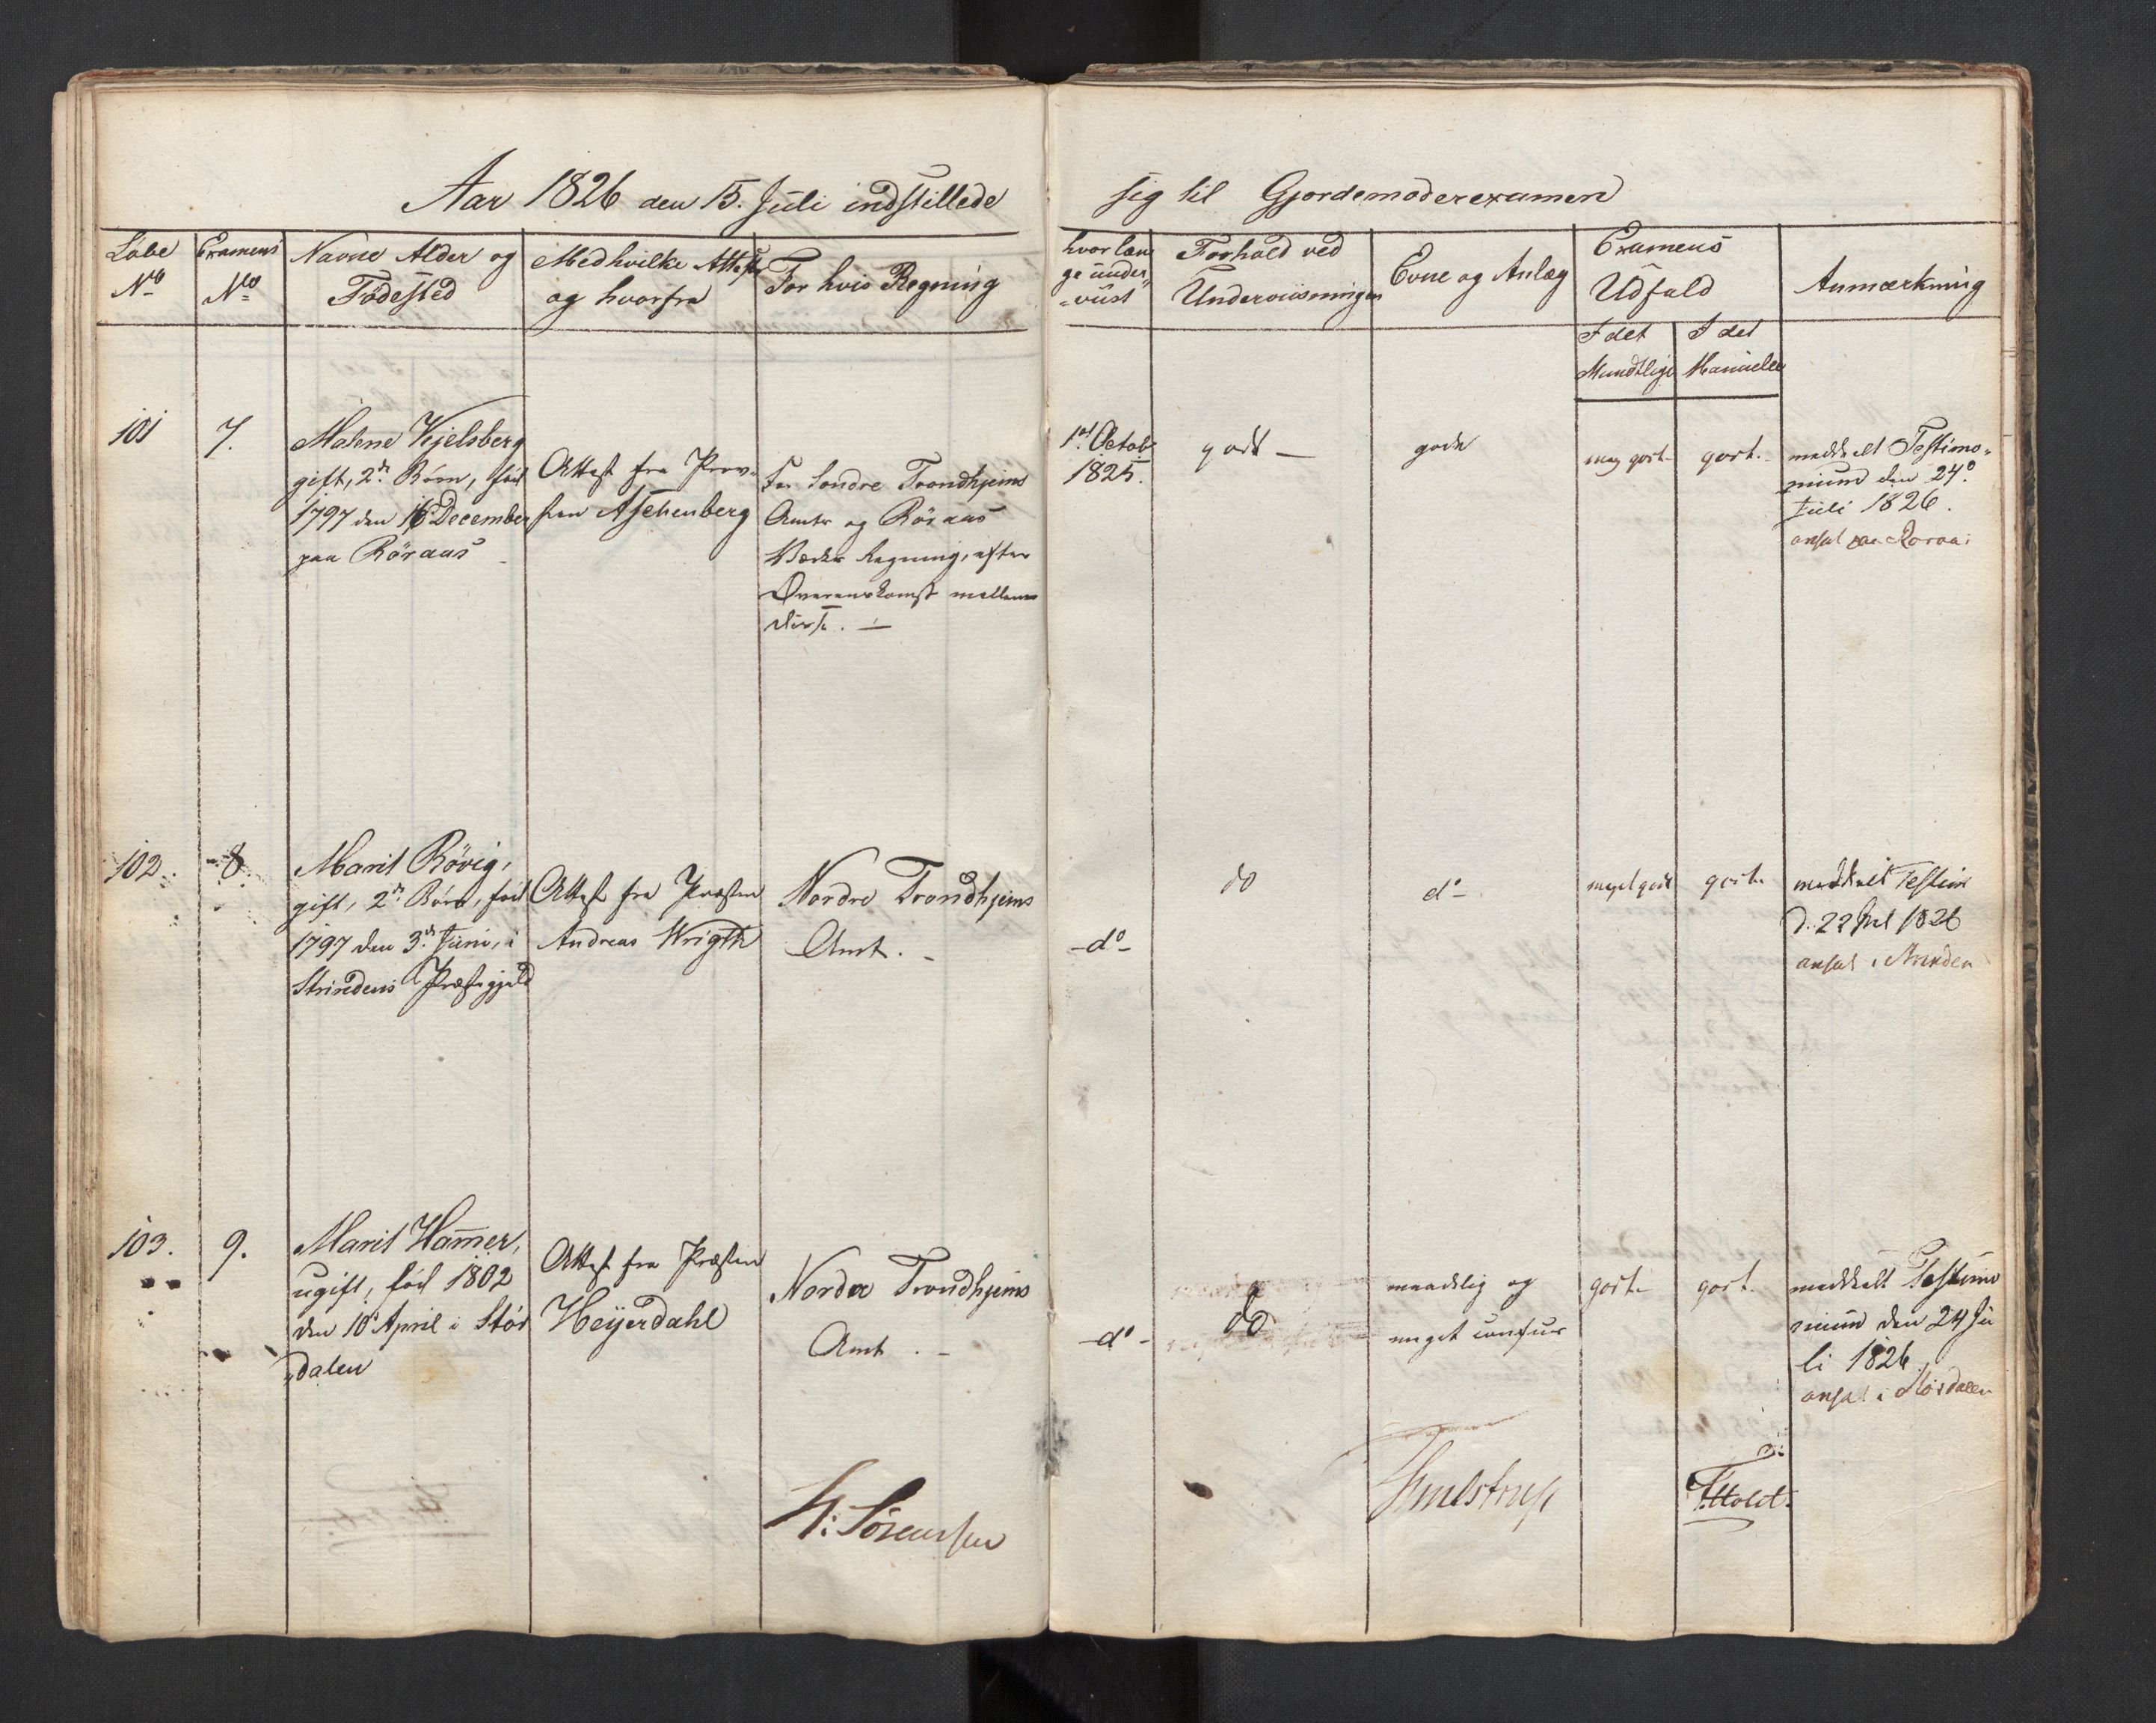 Aar 1826 den 15. Juli indstillede sig til Gjordemoderexamen
Løbe No
Examens No
Navne Alder og Fødested
Med hvilke Attester og hvorfra
For hvis Regning
hvorlænge underviist
Forhold ved Underviisningen
Evne og Anlæg
Examens Udfald
I det Mundtlige
I det Manuelle
Anmærkning
101
7.
Malene Kjelsberg
gift, 2de Børn, fød
1797 den 16 December
paa Röraas
Attest fra Prov-
sten Aschenberg
For Søndre Trondhjems
Amts og Röraas
Værks Regning, efter
Overenskomst mellem
disse. —
1st Octob
1825.
godt —
gode
meg godt
godt.
meddelt Testimo-
nium den 24de
Juli 1826.
ansat paa Roraas
102.
8.
Marit Røvig,
gift, 2de Børn, fød
1797 den 3de Juni, i
Strindens Præstegjeld
Attest fra Præsten
Andreas Wrigth
Nordre Trondhjems
Amt. -
-do-
do
do-
meget godt
godt
meddeelt Testim
d. 22 Jul 1826
ansat i Strinden
103.
9.
Marit Ham̅er,
ugift, fød 1802
den 10de April i Stør
„dalen
Attest fra Præsten
Heÿerdahl
Nordre Trondhjems
Amt. -
-do-
do
maadelig og
meget confus
godt
godt.
meddeelt Testimo
nium den 24 Ju
li 1826.
ansat i Størdalen
H: Sörenssen
Thulstrup
F. Holst.